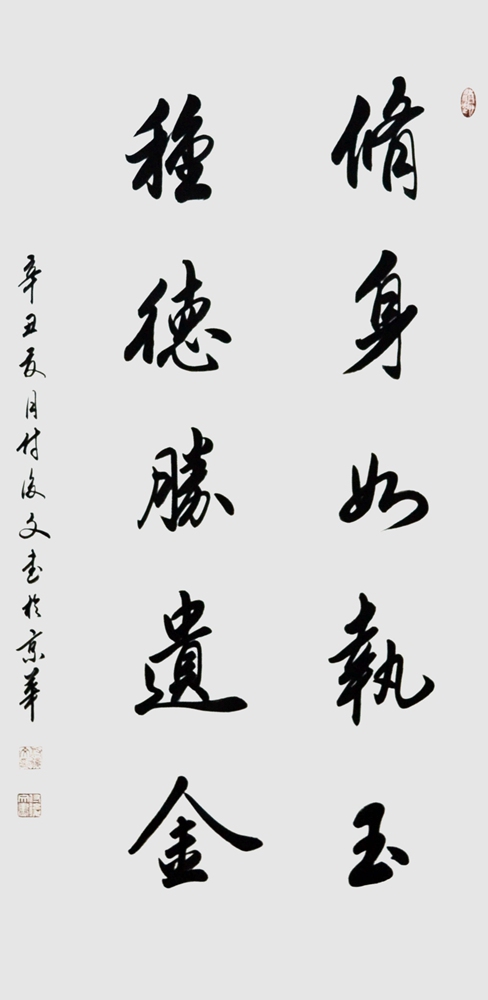 脩身如執玉
種德勝遺金
辛丑夏月付文書於京華